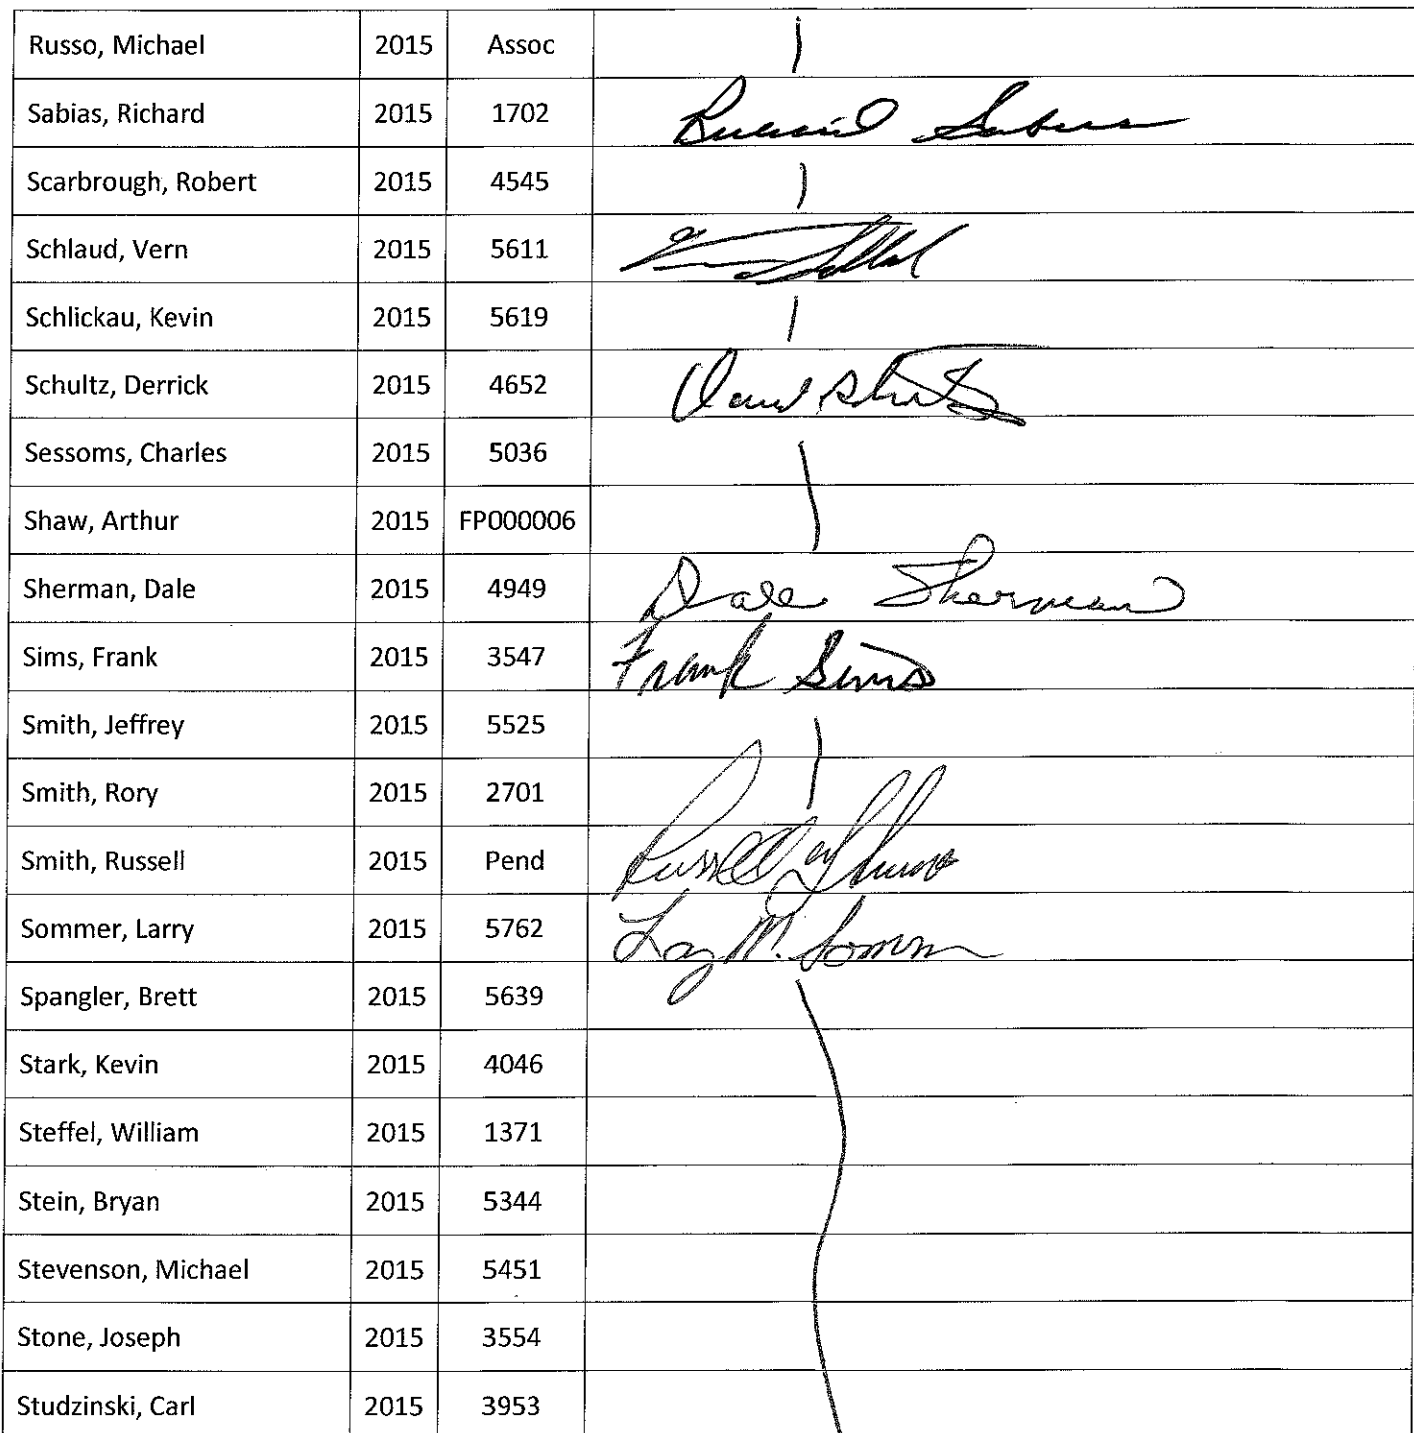 Russo, Michael 2015 Assoc
Sabias, Richard 2015 1702 Richard Sabias
Scarbrough, Robert 2015 4545
Schlaud, Vern 2015 5611
Schlickau, Kevin 2015 5619
Schultz, Derrick 2015 4652
Sessoms, Charles 2015 5036
Shaw, Arthur 2015 FP000006
Sherman, Dale 2015 4949 Dale Sherman
Sims, Frank 2015 3547 Frank Sims
Smith, Jeffrey 2015 5525
Smith, Rory 2015 2701
Smith, Russell 2015 Pend Russell
Sommer, Larry 2015 5762 M. Somm
Spangler, Brett 2015 5639
Stark, Kevin 2015 4046
Steffel, William 2015 1371
Stein, Bryan 2015 5344
Stevenson, Michael 2015 5451
Stone, Joseph 2015 3554
Studzinski, Carl 2015 3953